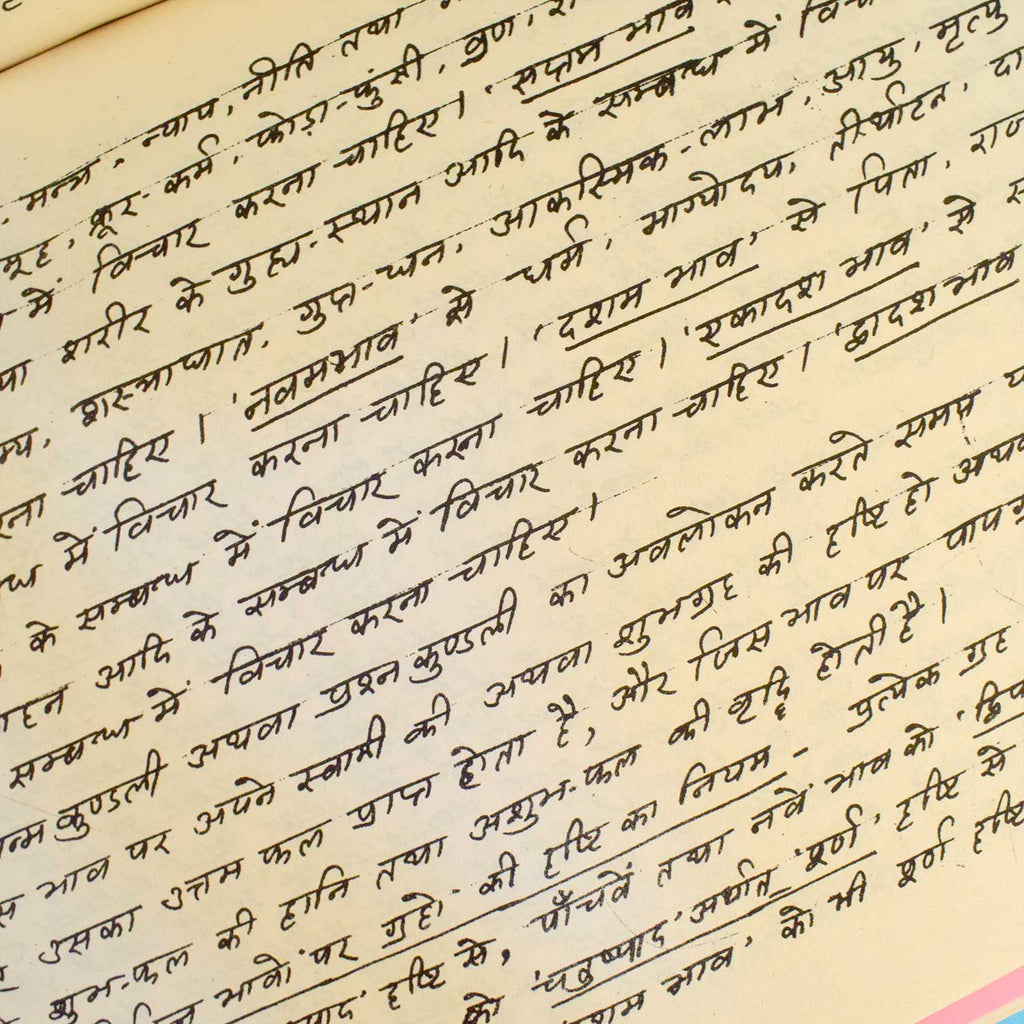 न्याय, नीति तथा
मन्त्र, क्रूर-कर्म, फोड़ा-फुंसी, व्रण,
में विचार करना चाहिए। 'सप्तम भाव
शरीर के गुह्य-स्थान आदि के सम्बन्ध में
शस्त्राघात, गुप्त-धन, आकस्मिक-लाभ, आयु, मृत्यु
चाहिए। 'नवमभाव' से धर्म, भाग्योदय, तीर्थाटन,
में विचार करना चाहिए। 'दशम भाव' से पिता,
के सम्बन्ध में विचार करना चाहिए। 'एकादश भाव' से
आदि के सम्बन्ध में विचार करना चाहिए। 'द्वादश भाव
सम्बन्ध में विचार करना चाहिए।
कुण्डली अथवा प्रश्न कुण्डली का अवलोकन करते समय
भाव पर अपने स्वामी की अथवा शुभग्रह की दृष्टि हो
उसका उत्तम फल प्राप्त होता है, और जिस भाव पर
शुभ-फल की हानि तथा अशुभ-फल की वृद्धि होती है।
भावों पर ग्रहों की दृष्टि का नियम - प्रत्येक ग्रह
दृष्टि से, पाँचवें तथा नवें भाव को
को 'चतुष्पाद' अर्थात् 'पूर्ण' दृष्टि से
भाव' को भी पूर्ण दृष्टि